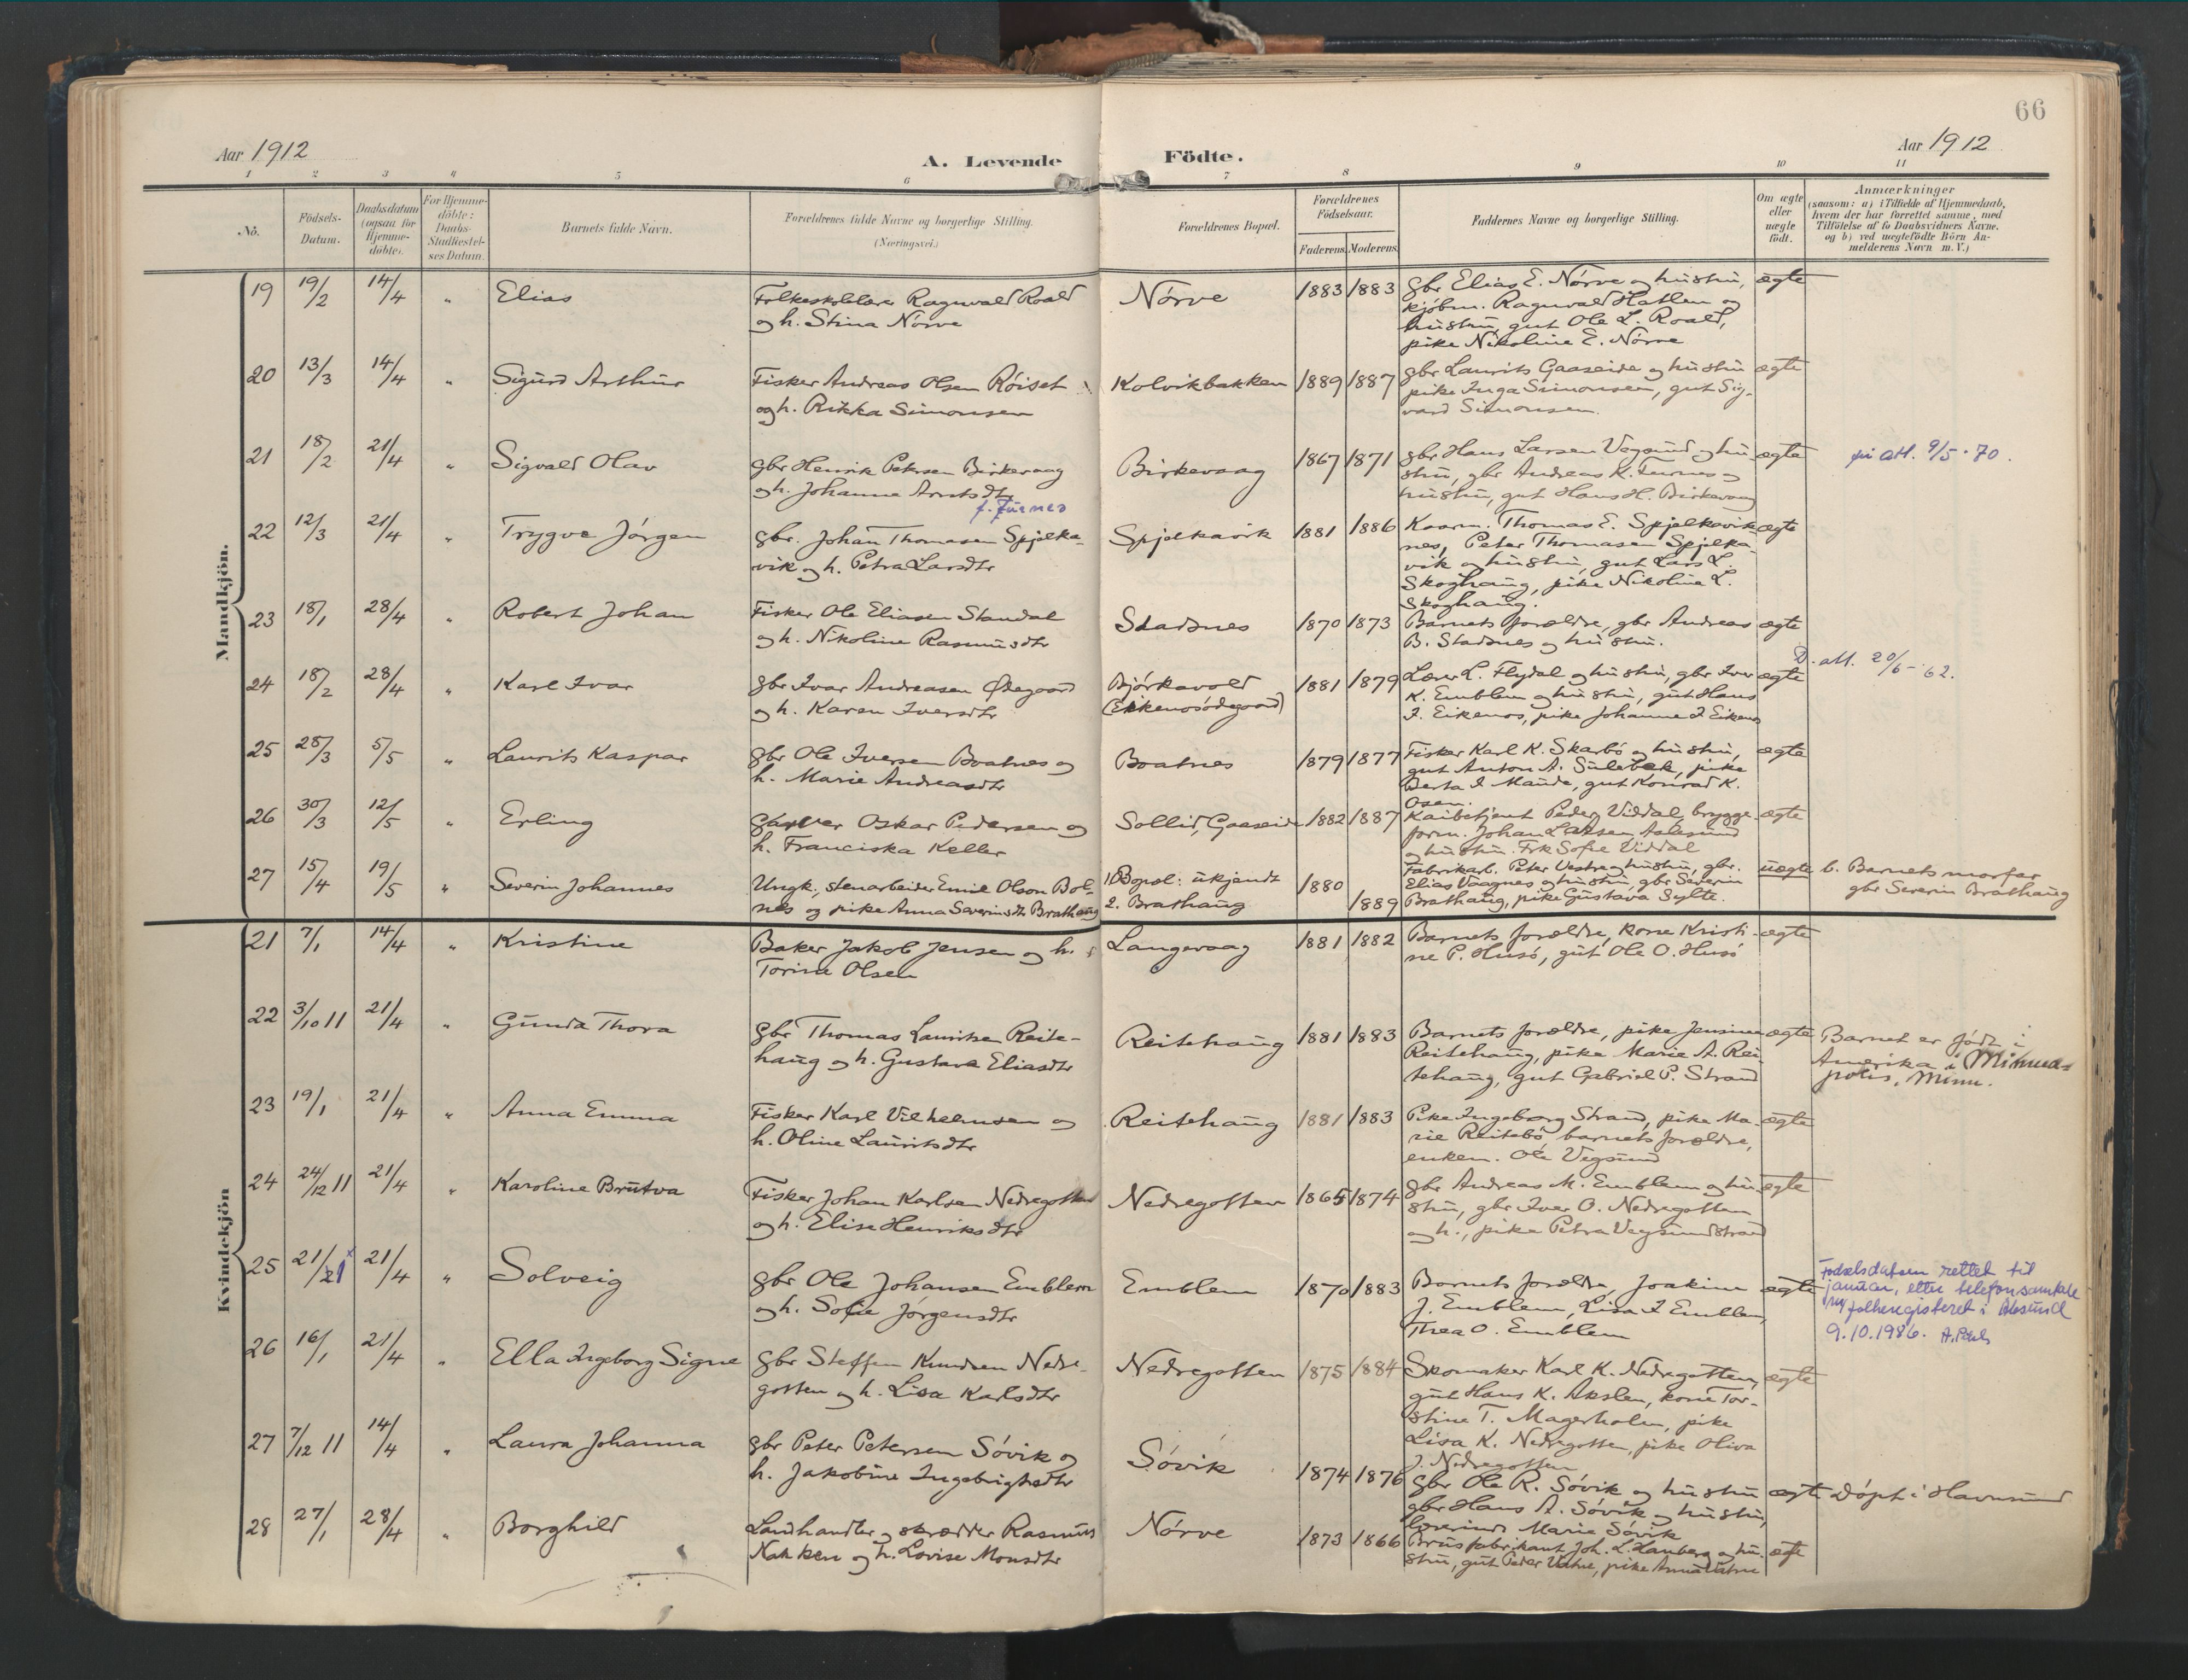 66
Aar 1912
A. Levende Födte.
Aar 1912
1 2 3 4 5 6 7 8 9 10 11
No.
Födsels-Datum.
Daabsdatum (ogsaa for Hjemme-döbte).
For Hjemme-döbte: Daabs-Stadfæstel-ses Datum.
Barnets fulde Navn.
Forældrenes fulde Navne og borgerlige Stilling. (Næringsvei.)
Forældrenes Bopæl.
Forældrenes Födselsaar.
Faderens. Moderens.
Faddernes Navne og borgerlige Stilling.
Om ægte eller uægte födt.
Anmærkninger
(saasom: a) i Tilfælde af Hjemmedaab,
hvem der har forrettet samme, med
Tilföielse af to Daabsvidners Navne,
og b) ved uægtefödte Börn An-
melderens Navn m. V.)
Mandkjön.
19 19/2 14/4 " Elias
Folkeskolelærer Ragnvald Roald
og h. Stina Nörve
Nörve 1883 1883
gbr Elias E. Nörve og hustru,
kjöbm. Ragnvald Hatlen og
hustru, gut Ole L. Roald,
pike Nikoline E. Nörve
ægte
20 13/3 14/4 " Sigurd Arthur
Fisker Andreas Olsen Röiset
og h. Rikka Simonsen
Kolvikbakken 1889 1887
gbr Laurits Gaaseide og hustru
pike Inga Simonsen, gut Sig-
vard Simonsen.
ægte
21 18/2 21/4 " Sigvald Olav
gbr Henrik Petersen Birkevaag
og h. Johanne Arntsdtr
f. Furnes
Birkevaag 1867 1871
gbr Hans Larsen Vegsund og hu-
stru, gbr Andreas K. Furnes og
hustru, gut Hans H. Birkevaag
ægte
att. 9/5-70.
22 12/3 21/4 " Trygve Jörgen
gbr. Johan Thomasen Spjelka-
vik og h. Petra Larsdtr
Spjelkavik 1881 1886
Kaarm. Thomas E. Spjelkavik-
nes, Peter Thomasen Spjelka-
vik og hustru, gut Lars L.
Skoghaug, pike Nikoline L.
Skoghaug.
ægte
23 18/1 28/4 " Robert Johan
Fisker Ole Eliasen Standal
og h. Nikoline Rasmusdtr
Stadsnes 1870 1873
Barnets forældre, gbr Andreas
B. Stadsnes og hustru.
ægte
24 18/2 28/4 " Karl Ivar
gbr Ivar Andreasen Ödegaard
og h. Karen Iversdtr
Björkavold
(Eikenosödegaard)
1881 1879
Lærer L. Flydal og hustru, gbr Iver
K. Emblem og hustru, gut Hans
I. Eikenos, pike Johanne I Eikenos
ægte
D. att. 20/6-62.
25 28/3 5/5 " Laurits Kaspar
gbr Ole Iversen Boatnes og
h. Marie Andreasdtr
Boatnes 1879 1877
Fisker Karl K. Skarbö og hustru,
gut Anton A. Sulebak, pike
Berta I Mande, gut Konrad K.
Osen.
ægte
26 30/3 12/5 " Erling
Garver Oskar Pedersen og
h. Franciska Keller
Sollid, Gaaseide 1882 1887
Kaibetjent Peder Viddal, brygge
form. Johan Larsen, Aalesund
og hustru. Frk Sofie Viddal
ægte
27 15/4 19/5 " Severin Johannes
Ungk., stenarbeider Emil Olson Bol-
nes og pike Anna Severinsdtr Brathaug
1. Bopæl: ukjendt
2. Brathaug
1880 1889
Fabrikarb. Peter Vestre og hustru, gbr.
Elias Vaagnes og hustru, gbr Severin
Brathaug, pike Gustava Sylte.
uægte
b. Barnets morfar
gbr Severin Brathaug
Kvindekjön
21 7/1 14/4 " Kristine
Baker Jakob Jensen og h.
Torine Olsen
Langevaag 1881 1882
Barnets forældre, kone Kristi-
ne P. Husö, gut Ole O. Husö
ægte
22 3/10 11 21/4 " Gunda Thora
gbr Thomas Lauritsen Reite-
haug og h. Gustava Eliasdtr
Reitehaug 1881 1883
Barnets forældre, pike Jensine
Reitehaug, pike Marie A. Rei
tehaug, gut Gabriel P. Strand
ægte
Barnet er födt i
Amerika i Minnea-
polis, Minn.
23 19/1 21/4 " Anna Emma
Fisker Karl Vilhelmsen og
h. Oline Lauritsdtr
Reitehaug 1881 1883
Pike Ingeborg Strand, pike Ma-
rie Reitebö, barnets forældre,
enkem. Ole Vegsund
ægte
24 24/12 11 21/4 " Karoline Brutva
Fisker Johan Karlsen Nedregotten
og h. Elise Henriksdtr
Nedregotten 1865 1874
gbr Andreas M. Emblem og hu
stru, gbr Iver O. Nedregotten
og h., pike Petra Vegsundstrand
ægte
25 21/1 21/4 " Solveig
gbr Ole Johansen Emblem
og h. Sofie Jörgensdtr
Emblem 1870 1883
Barnets forældre, Joakim
J. Emblem, Lisa I Emblem,
Thea O. Emblem
ægte
Fødselsdatoen rettet til
januar, etter telefonsamtale
m/ folkeregisteret i Ålesund
9.10.1986.
26 16/1 21/4 " Ella Ingeborg Signe
gbr Steffen Knudsen Nedre-
gotten og h. Lisa Karlsdtr
Nedregotten 1875 1884
Skomaker Karl K. Nedregotten,
gut Hans K. Akslen, kone Tor-
stine T. Magerholm, pike
Lisa K. Nedregotten, pike Oliva
J. Nedregotten
ægte
27 7/12 11 14/4 " Laura Johanna
gbr Peter Petersen Sövik og
h. Jakobine Ingebrigtsdtr
Sövik 1874 1876
gbr Ole R. Sövik og hustru
gbr Hans A. Sövik og hustru,
lærerinde Marie Sövik
ægte
Döpt i Havnsund
28 27/1 28/4 " Borghild
Landhandler og skrædder Rasmus
Nakken og h. Lovise Monsdtr
Nörve 1873 1866
Brusfabrikant Joh. L. Hauberg og hu-
stru, gut Peder Vatne, pike Anna Vatne
ægte